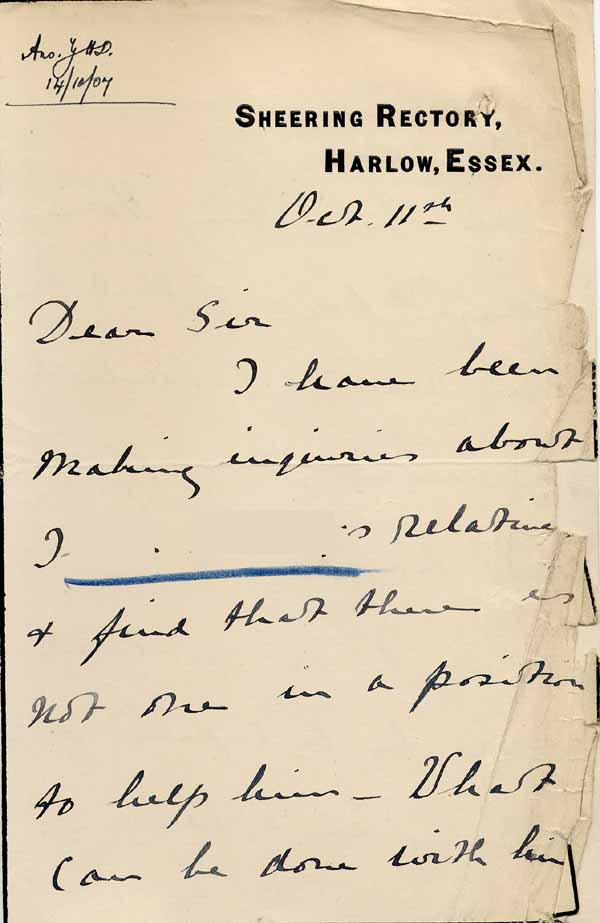 Ans. Y H D.
14/10/07
SHEERING RECTORY,
HARLOW, ESSEX.
Oct. 11th
Dear Sir
I have been
making inquiries about
's relatives
& find that there is
not one in a position
to help him – What
can be done with him